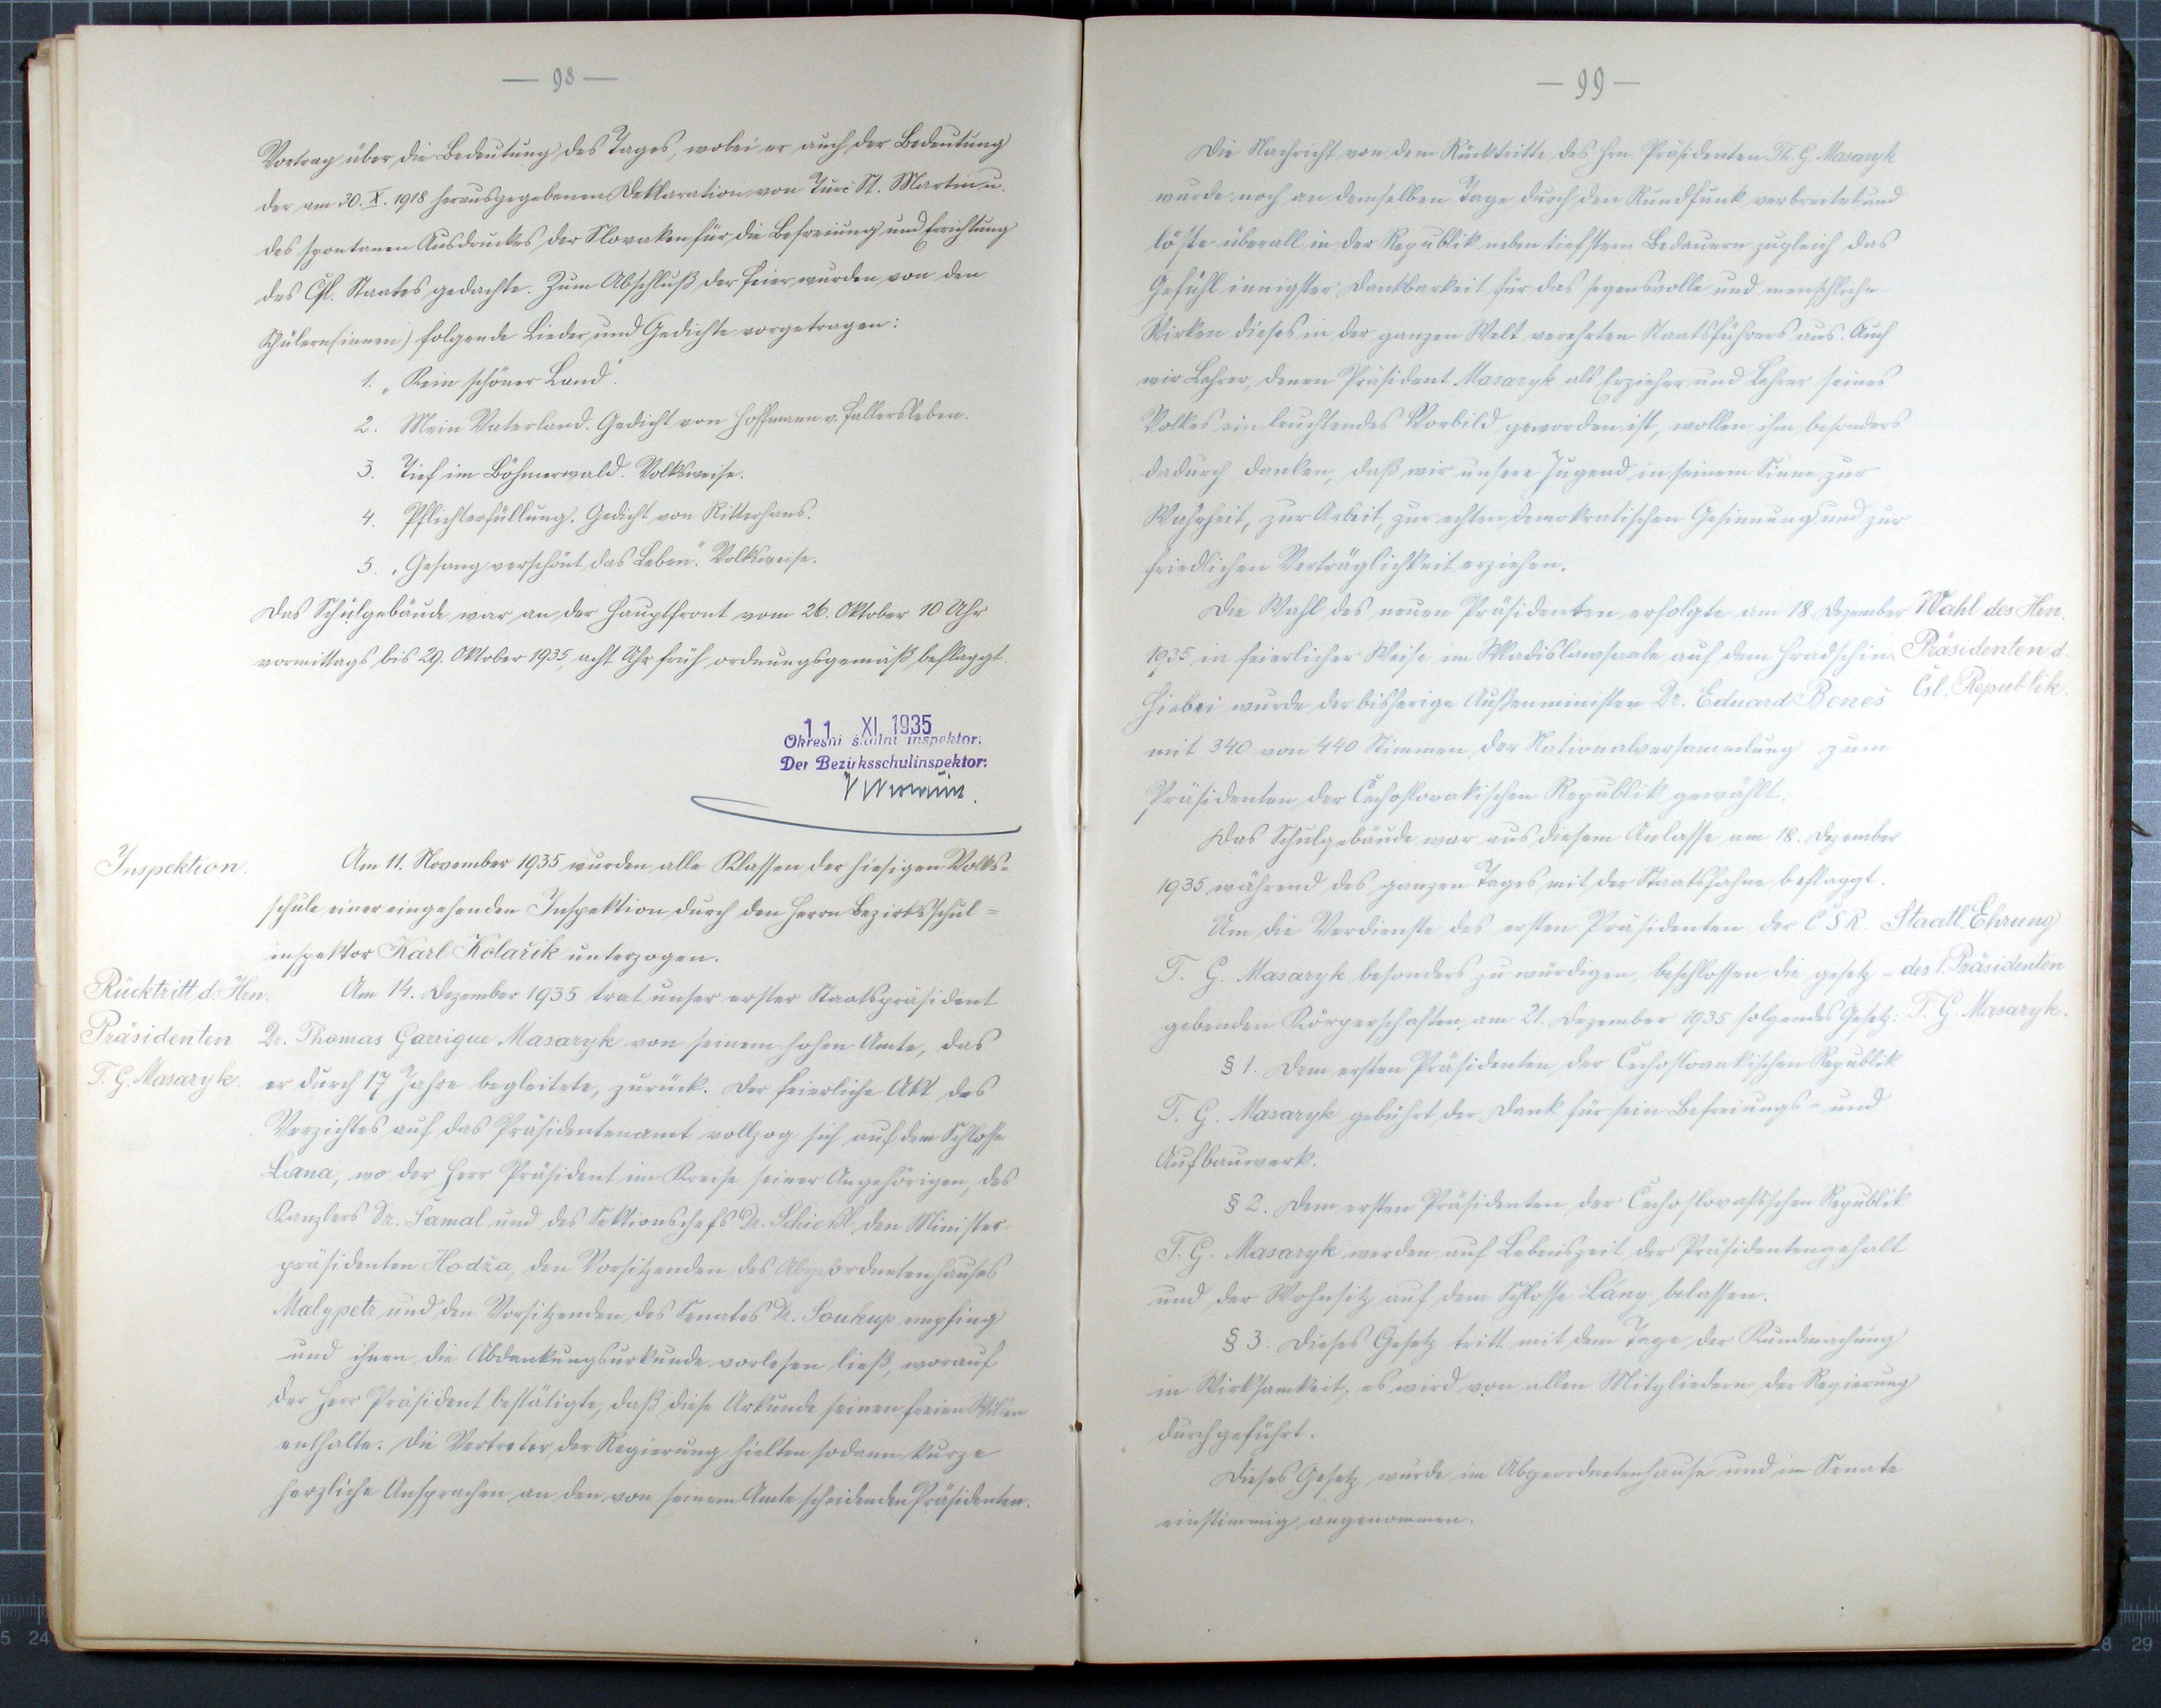 — 98 —
Vortrag über die Bedeutung des Tages, wobei er auch der Bedeutung
der am 30. X. 1918 herausgegebenen Deklaration von Turč St. Martin u.
des spontanen Ausdruckes der Slovaken für die Befreiung und Errichtung
des Čsl. Staates gedachte. Zum Abschluß der Feier wurden von den
Schülern(innen) folgende Lieder und Gedichte vorgetragen:
1. „Kein schöner Land".
2. Mein Vaterland. Gedicht von Hoffmann v. Fallersleben.
3. Tief im Böhmerwald. Volksweise.
4. Pflichterfüllung. Gedicht von Rittershaus.
5. „Gesang verschönt das Leben". Volksweise.
Das Schulgebäude war an der Hauptfront vom 26. Oktober 10 Uhr
vormittags bis 29. Oktober 1935, acht Uhr früh ordnungsgemäß beflaggt
11. XI. 1935
Okresní školní inspektor:
Der Bezirksschulinspektor:
Inspektion.
Am 11. November 1935 wurden alle Klassen der hiesigen Volks-
schule einer eingehenden Inspektion durch den Herrn Bezirksschul-
inspektor Karl Kolařik unterzogen.
Rücktritt d. Hrn.
Präsidenten
T. G. Masaryk.
Am 14. Dezember 1935 trat unser erster Staatspräsident
Dr. Thomas Garrigue Masaryk von seinem hohen Amte, das
er durch 17 Jahre begleitete, zurück. Der feierliche Akt des
Verzichtes auf das Präsidentenamt vollzog sich auf dem Schlosse
Lana, wo der Herr Präsident im Kreise seiner Angehörigen, des
Kanzlers Dr. Šamal und des Sektionschefs Dr. Schieszl den Minister-
präsidenten Hodža, den Vorsitzenden des Abgeordnetenhauses
Malypetr und den Vorsitzenden des Senates Dr. Soukup empfing
und ihnen die Abdankungsurkunde vorlesen ließ, worauf
der Herr Präsident bestätigte, daß diese Urkunde seinen freien Willen
enthalte. Die Vertreter der Regierung hielten sodann kurze
herzliche Ansprachen an den von seinem Amte scheidenden Präsidenten.
— 99 —
Die Nachricht von dem Rücktritte des Hrn. Präsidenten Th. G. Masaryk
wurde noch an demselben Tage durch den Rundfunk verbreitet und
löste überall in der Republik neben tiefstem Bedauern zugleich das
Gefühl innigster Dankbarkeit für das segensvolle und menschliche
Wirken dieses in der ganzen Welt verehrten Staatsführers aus. Auch
wir Lehrer, denen Präsident Masaryk als Erzieher und Lehrer seines
Volkes ein leuchtendes Vorbild geworden ist, wollen ihm besonders
dadurch danken, daß wir unsere Jugend in seinem Sinne zur
Wahrheit, zur Arbeit, zur echten demokratischen Gesinnung und zur
friedlichen Verträglichkeit erziehen.
Die Wahl des neuen Präsidenten erfolgte am 18. Dezember
1935 in feierlicher Weise im Wladislawsaale auf dem Hradschin.
Hiebei wurde der bisherige Außenminister Dr. Eduard Beneš
mit 340 von 440 Stimmen der Nationalversammlung zum
Präsidenten der Čechoslovakischen Republik gewählt.
Wahl des Hrn.
Präsidenten d.
Čsl. Republik.
Das Schulgebäude war aus diesem Anlasse am 18. Dezember
1935 während des ganzen Tages mit der Staatsfahne beflaggt.
Um die Verdienste des ersten Präsidenten der ČSR.
T. G. Masaryk besonders zu würdigen, beschlossen die gesetz-
gebenden Körperschaften am 21. Dezember 1935 folgendes Gesetz:
Staatl. Ehrung
des 1. Präsidenten
T. G. Masaryk.
§ 1. Dem ersten Präsidenten der Čechoslovakischen Republik
T. G. Masaryk gebührt der Dank für sein Befreiungs- und
Aufbauwerk.
§ 2. Dem ersten Präsidenten der Čechoslovakischen Republik
T. G. Masaryk werden auf Lebenszeit der Präsidentengehalt
und der Wohnsitz auf dem Schlosse Lány belassen.
§ 3. Dieses Gesetz tritt mit dem Tage der Kundmachung
in Wirksamkeit; es wird von allen Mitgliedern der Regierung
durchgeführt.
Dieses Gesetz wurde im Abgeordnetenhause und im Senate
einstimmig angenommen.